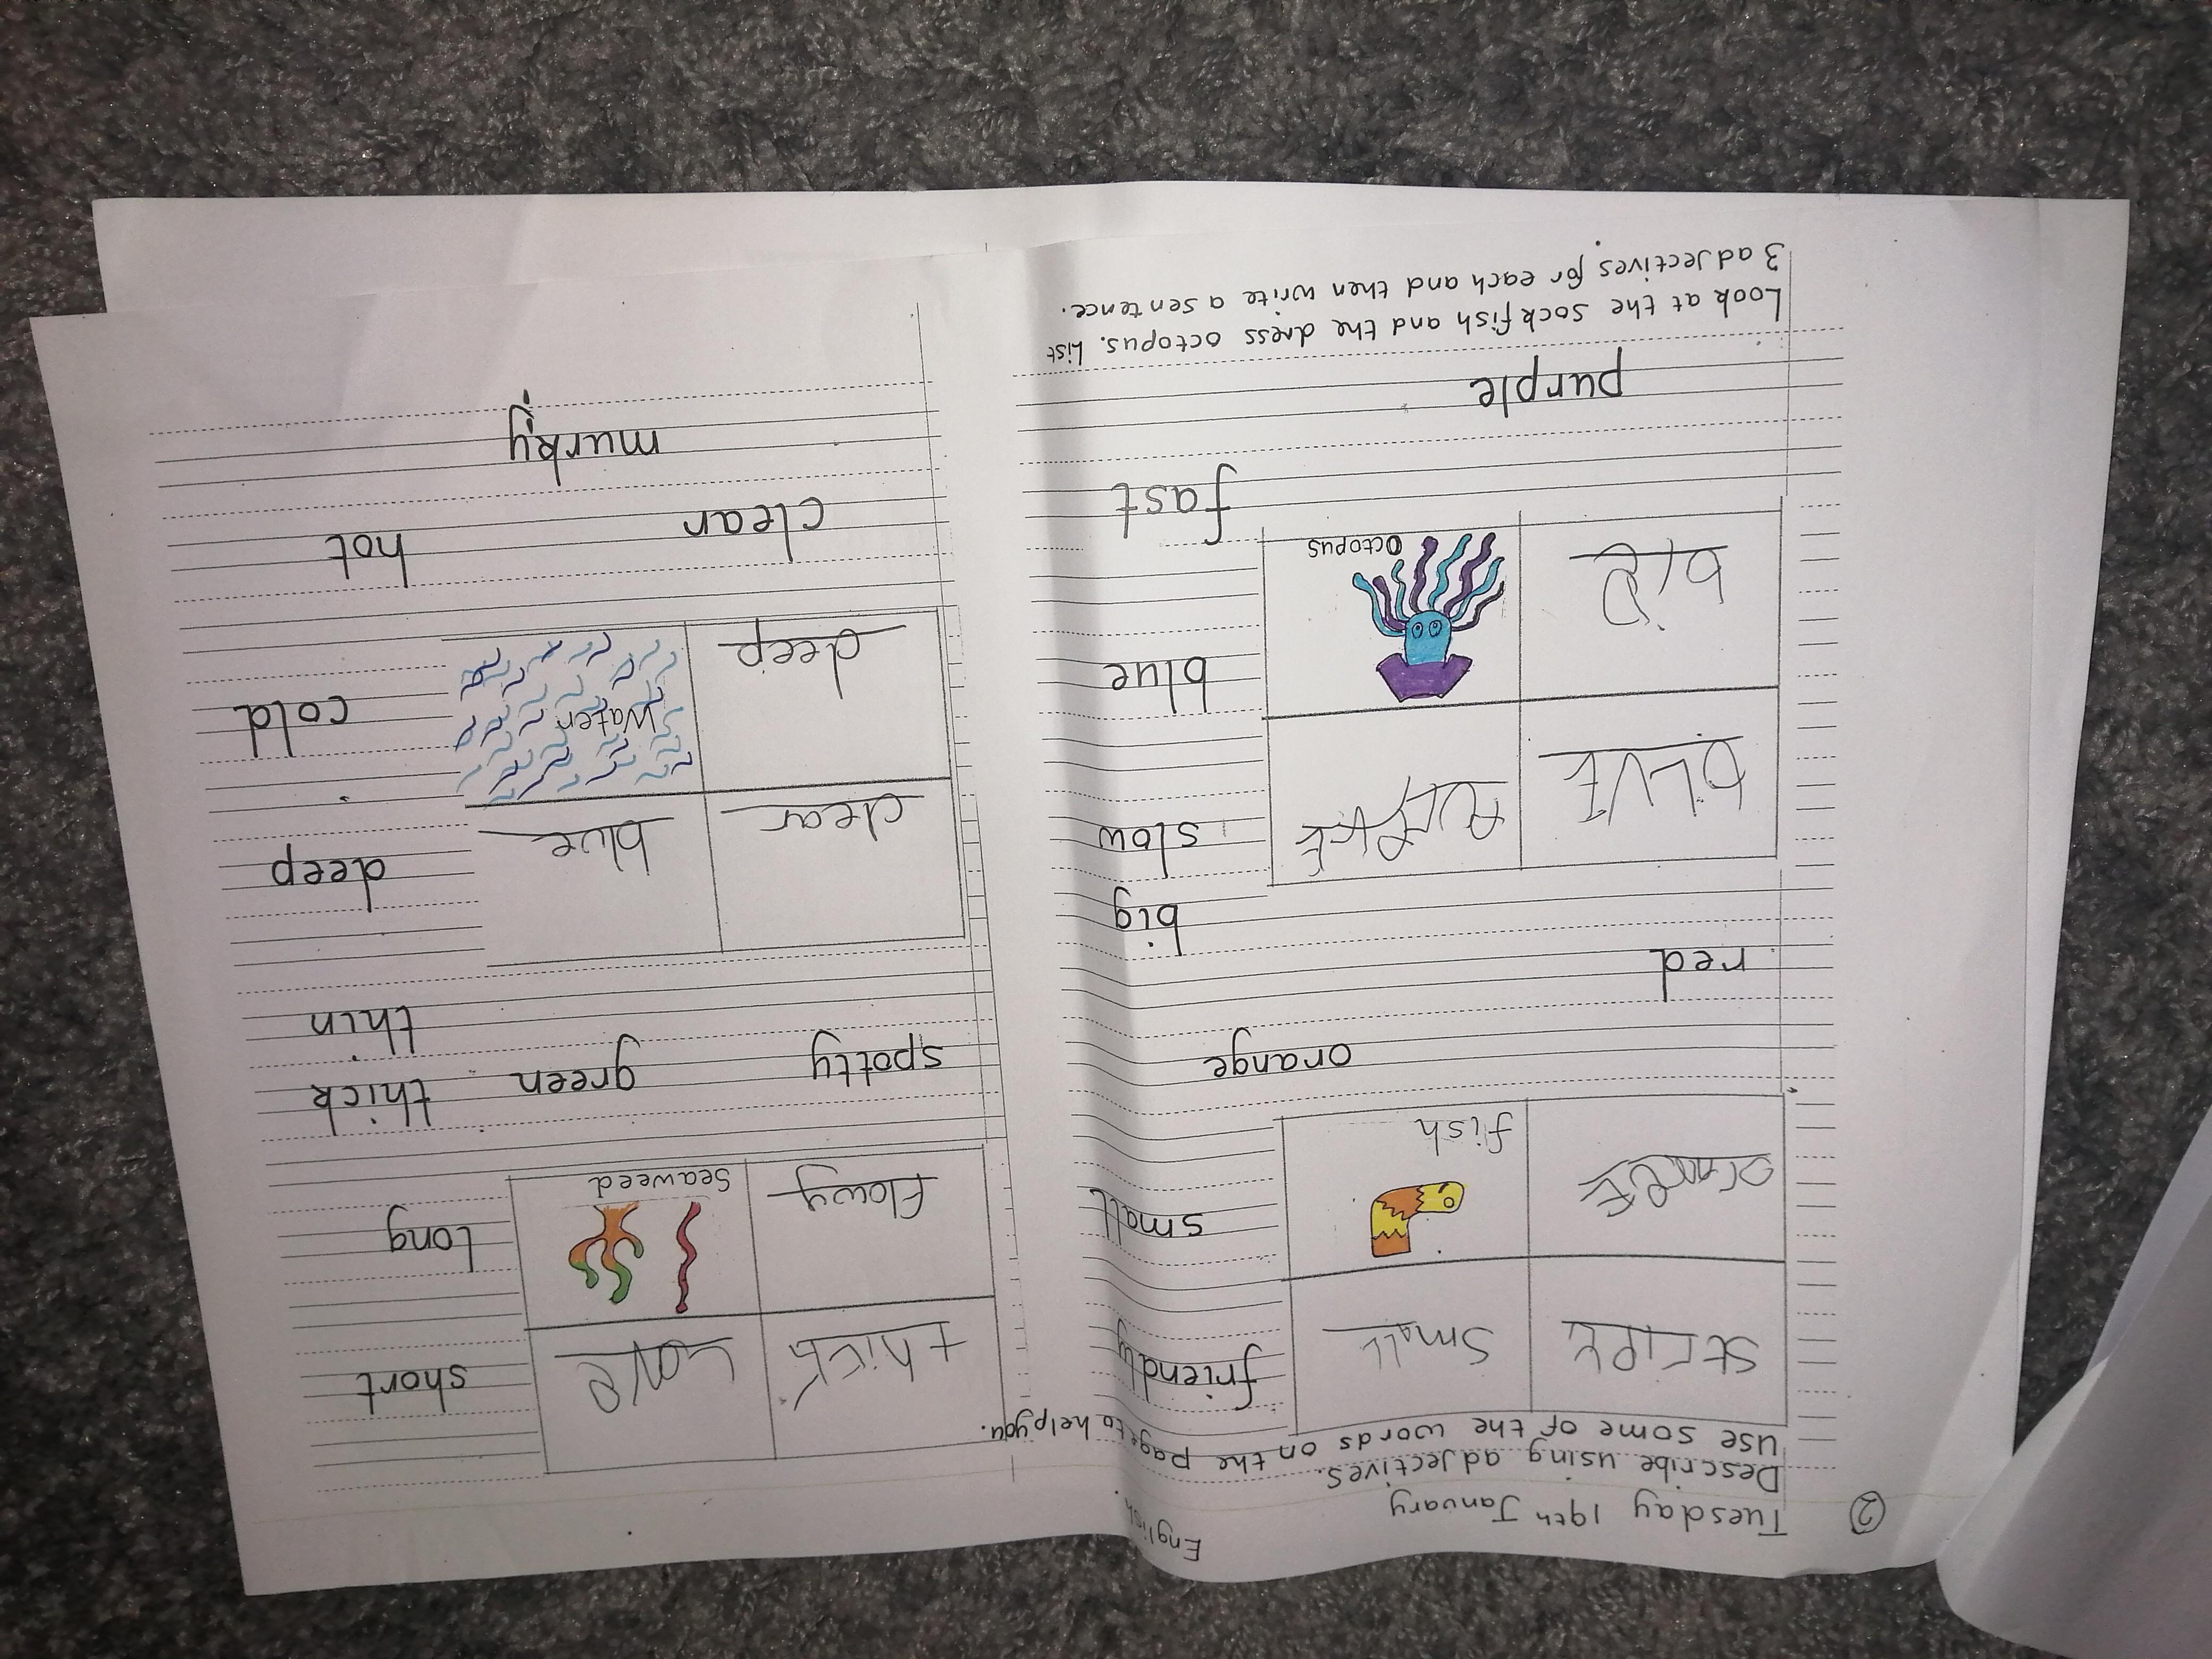 ② Tuesday 19th January English.
Describe using adjectives.
use some of the words on the page to help you.
stripy small friendly
ORANGE fish small
orange
red
big
BLUE PURPLE slow
blue
big Octopus
fast
purple
Look at the sockfish and the dress octopus. List
3 adjectives for each and then write a sentence.
thick LONG short
Flowy Seaweed Long
spotty green thick
thin
clear blue deep
Water cold
deep
clear hot
murky